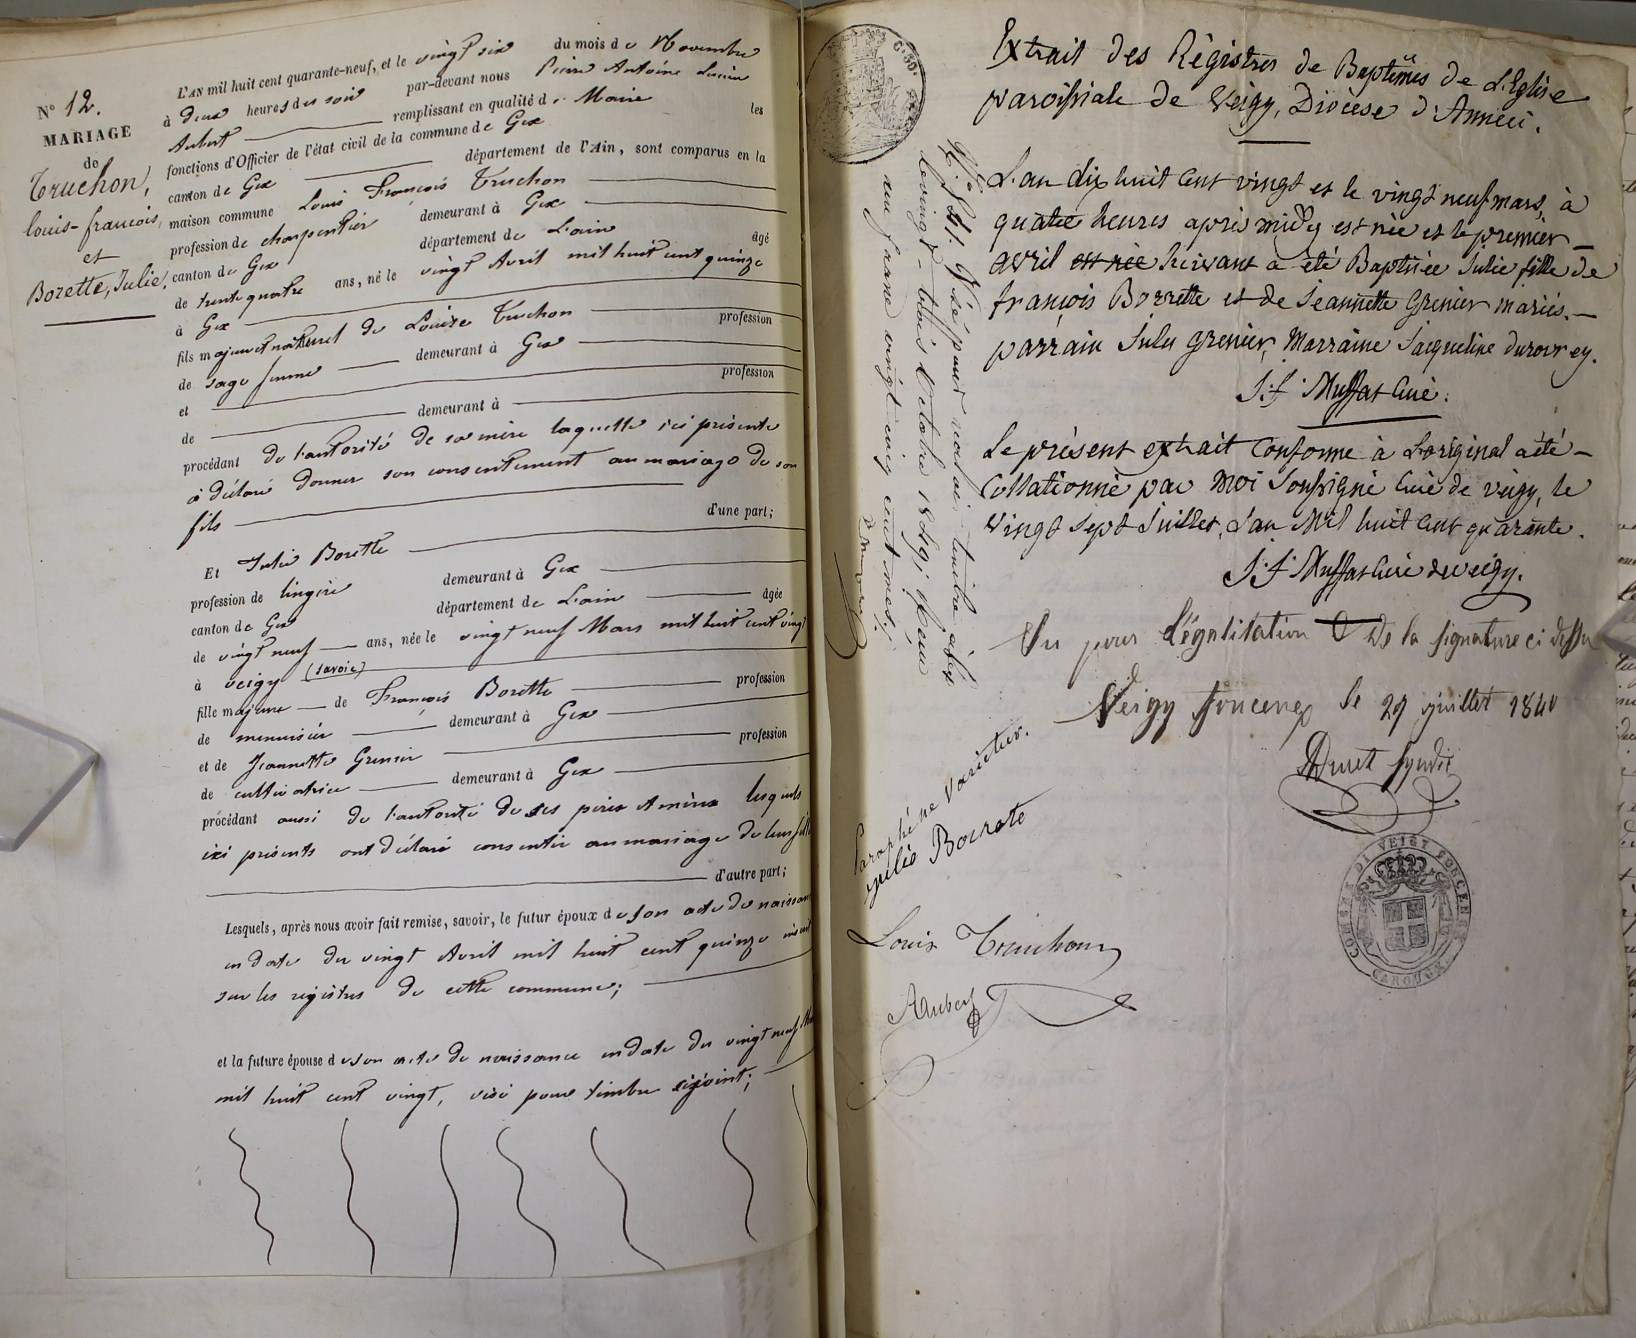 N° 12.
MARIAGE
de
Truchon,
louis-francois,
et
Borette, Julie.
L'AN mil huit cent quarante-neuf, et le vingt six du mois de Novembre
à deux heures du soir par-devant nous Pierre Antoine Lucien
Aubert remplissant en qualité de Maire les
fonctions d'Officier de l'état civil de la commune de Gex
canton de Gex département de l'Ain, sont comparus en la
maison commune Louis François Truchon
profession de charpentier demeurant à Gex
canton de Gex département de L'ain âgé
de trente quatre ans, né le vingt Avril mil huit cent quinze
à Gex
fils majeur et naturel de Louise Truchon profession
de sage femme demeurant à Gex
et profession
de demeurant à
procédant de l'autorité de sa mère laquelle ici présente
a déclaré donner son consentement au mariage de son
fils d'une part;
Et Julie Borette
profession de lingère demeurant à Gex
canton de Gex département de L'ain âgée
de vingt neuf ans, née le vingt neuf Mars mil huit cent vingt
à Veigy (Savoie)
fille majeure de François Borette profession
de menuisier demeurant à Gex
et de Jeannette Grenier profession
de cultivatrice demeurant à Gex
procédant aussi de l'autorité de ses père et mère lesquels
ici présents ont déclaré consentir au mariage de leur fille
d'autre part;
Lesquels, après nous avoir fait remise, savoir, le futur époux de son acte de naissance
en date du vingt Avril mil huit cent quinze inscrit
sur les registres de cette commune;
et la future épouse de son acte de naissance en date du vingt neuf Mars
mil huit cent vingt, visé pour timbre ci-joint;
Extrait des Régistres de Baptêmes de L'Eglise
paroissiale de Veigy, Diocèse d'Anneci.
L'an dix huit cent vingt et le vingt neuf mars, à
quatre heures après midy est née et le premier
avril est née suivant a été Baptisée Julie fille de
françois Borrette et de Jeannette Grenier mariés.
parrain Jules Grenier, Marraine Jacqueline Durovrey.
J. f. Muffat Curé.
Le présent extrait conforme à L'original a été
Collationné par Moi Soussigné Curé de Veigy, le
Vingt Sept Juillet, L'an Mil huit Cent quarante.
J. f. Muffat Curé de Veigy.
Vu pour légalisation de la signature ci dessus
Veigy Foncenex le 29 juillet 1840
Druet Syndic
COMUNE DI VEIGY FONCENEX
CAROUGE
Visé pour valoir timbre à Gex
le vingt-trois Octobre 1849; Reçu
un franc vingt cinq centimes;
Paraphé ne Varietur.
Julie Borrete
Louis Truchon
Aubert